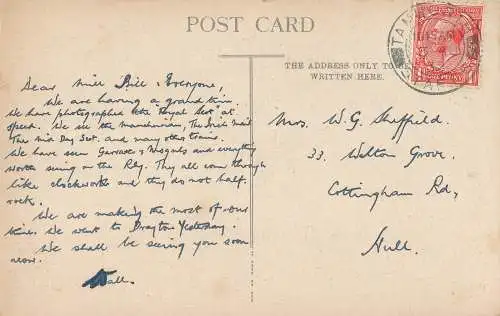 POST CARD
THE ADDRESS ONLY TO BE
WRITTEN HERE.
TAMWORTH
Dear Bill & Everyone,
We are having a grand time.
We have photographed the "Royal Scot" at
speed. We see the Mancunian, The Irish Mail
The Mid Day Scot. and many other trains.
We have seen Garratts & Moguls and everything
worth seeing on the Rly. They all come through
like clockwork and they do not half
rock.
We are making the most of our
time. We went to Drayton Yesterday.
We shall be seeing you soon
now.
Wall.
Mrs. W. G. Sheffield,
33, Welton Grove.
Cottingham Rd,
Hull.